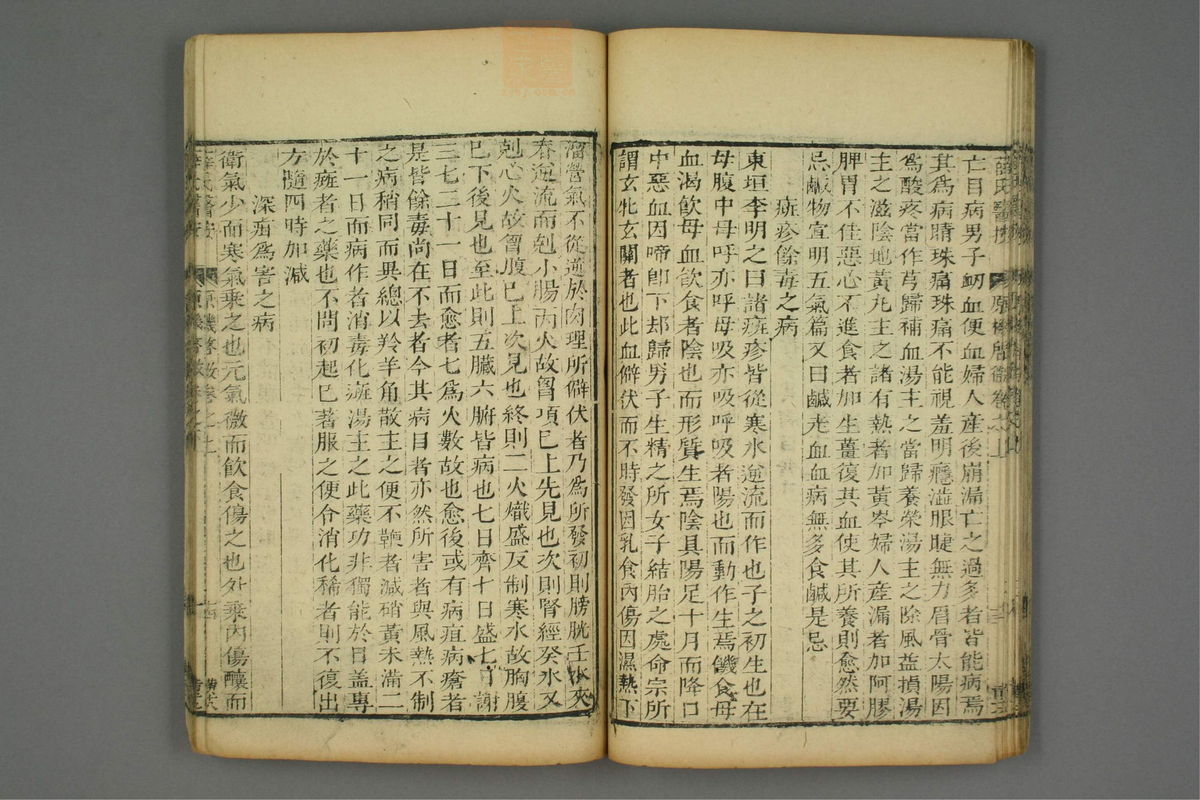 亡目病男子衂血便血婦人產後崩漏亡之過多者皆能病焉
其爲病睛珠痛珠痛不能視羞明癮澁眼睫無力眉骨太陽因
爲酸疼當作芎歸補血湯主之當歸養榮湯主之除風益損湯
主之滋陰地黃丸主之諸有熱者加黃芩婦人產漏者加阿膠
脾胃不佳惡心不進食者加生薑復其血使其所養則愈然要
忌鹹物宜明五氣篇又曰鹹走血血病無多食鹹是忌
癍疹餘毒之病
東垣李明之曰諸癍疹皆從寒水逆流而作也子之初生也在
母腹中母呼亦呼母吸亦吸呼吸者陽也而動作生焉饑食母
血渴飲母血飲食者陰也而形質生焉陰具陽足十月而降口
中惡血因啼卽下却歸男子生精之所女子結胎之處命宗所
謂玄牝玄關者也此血僻伏而不時發因乳食內傷因濕熱下
溜營氣不從逆於肉理所僻伏者乃爲所發初則膀胱壬水夾
脊逆流而剋小腸丙火故胷項已上先見也次則腎經癸水又
剋心火故胷腹已上次見也終則二火熾盛反制寒水故胸腹
已下後見也至此則五臟六腑皆病也七日齊十日盛七日謝
三七二十一日而愈者七爲火數故也愈後或有病疽病瘡者
是皆餘毒尚在不去者今其病目者亦然所害者與風熱不制
之病稍同而異總以羚羊角散主之便不鞕者減硝黃未滿二
十一日而病作者消毒化癍湯主之此藥功非獨能於目盖專
於癍者之藥也不問初起已著服之便令消化稀者則不復出
方隨四時加減
深疳爲害之病
衛氣少而寒氣乘之也元氣微而飲食傷之也外乘內傷釀而
薛氏醫按
原機啓微卷之上